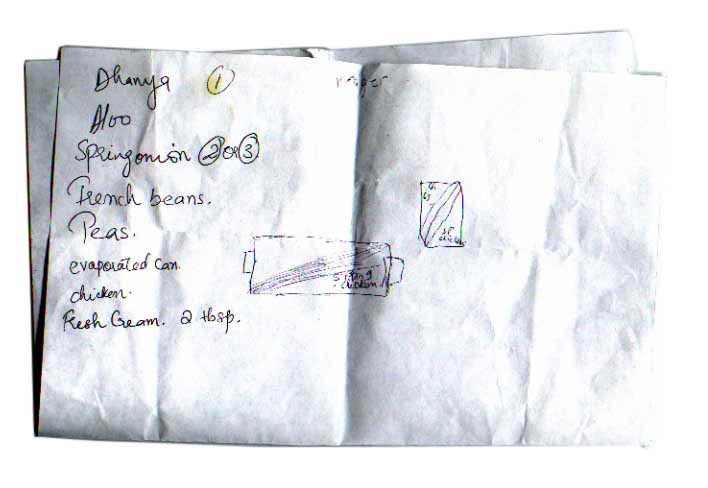 Dhanya ①
Aloo
Spring onion ② or ③
French beans.
Peas.
evaporated Can.
chicken.
Fresh Cream. 2 tbsp.
chicken